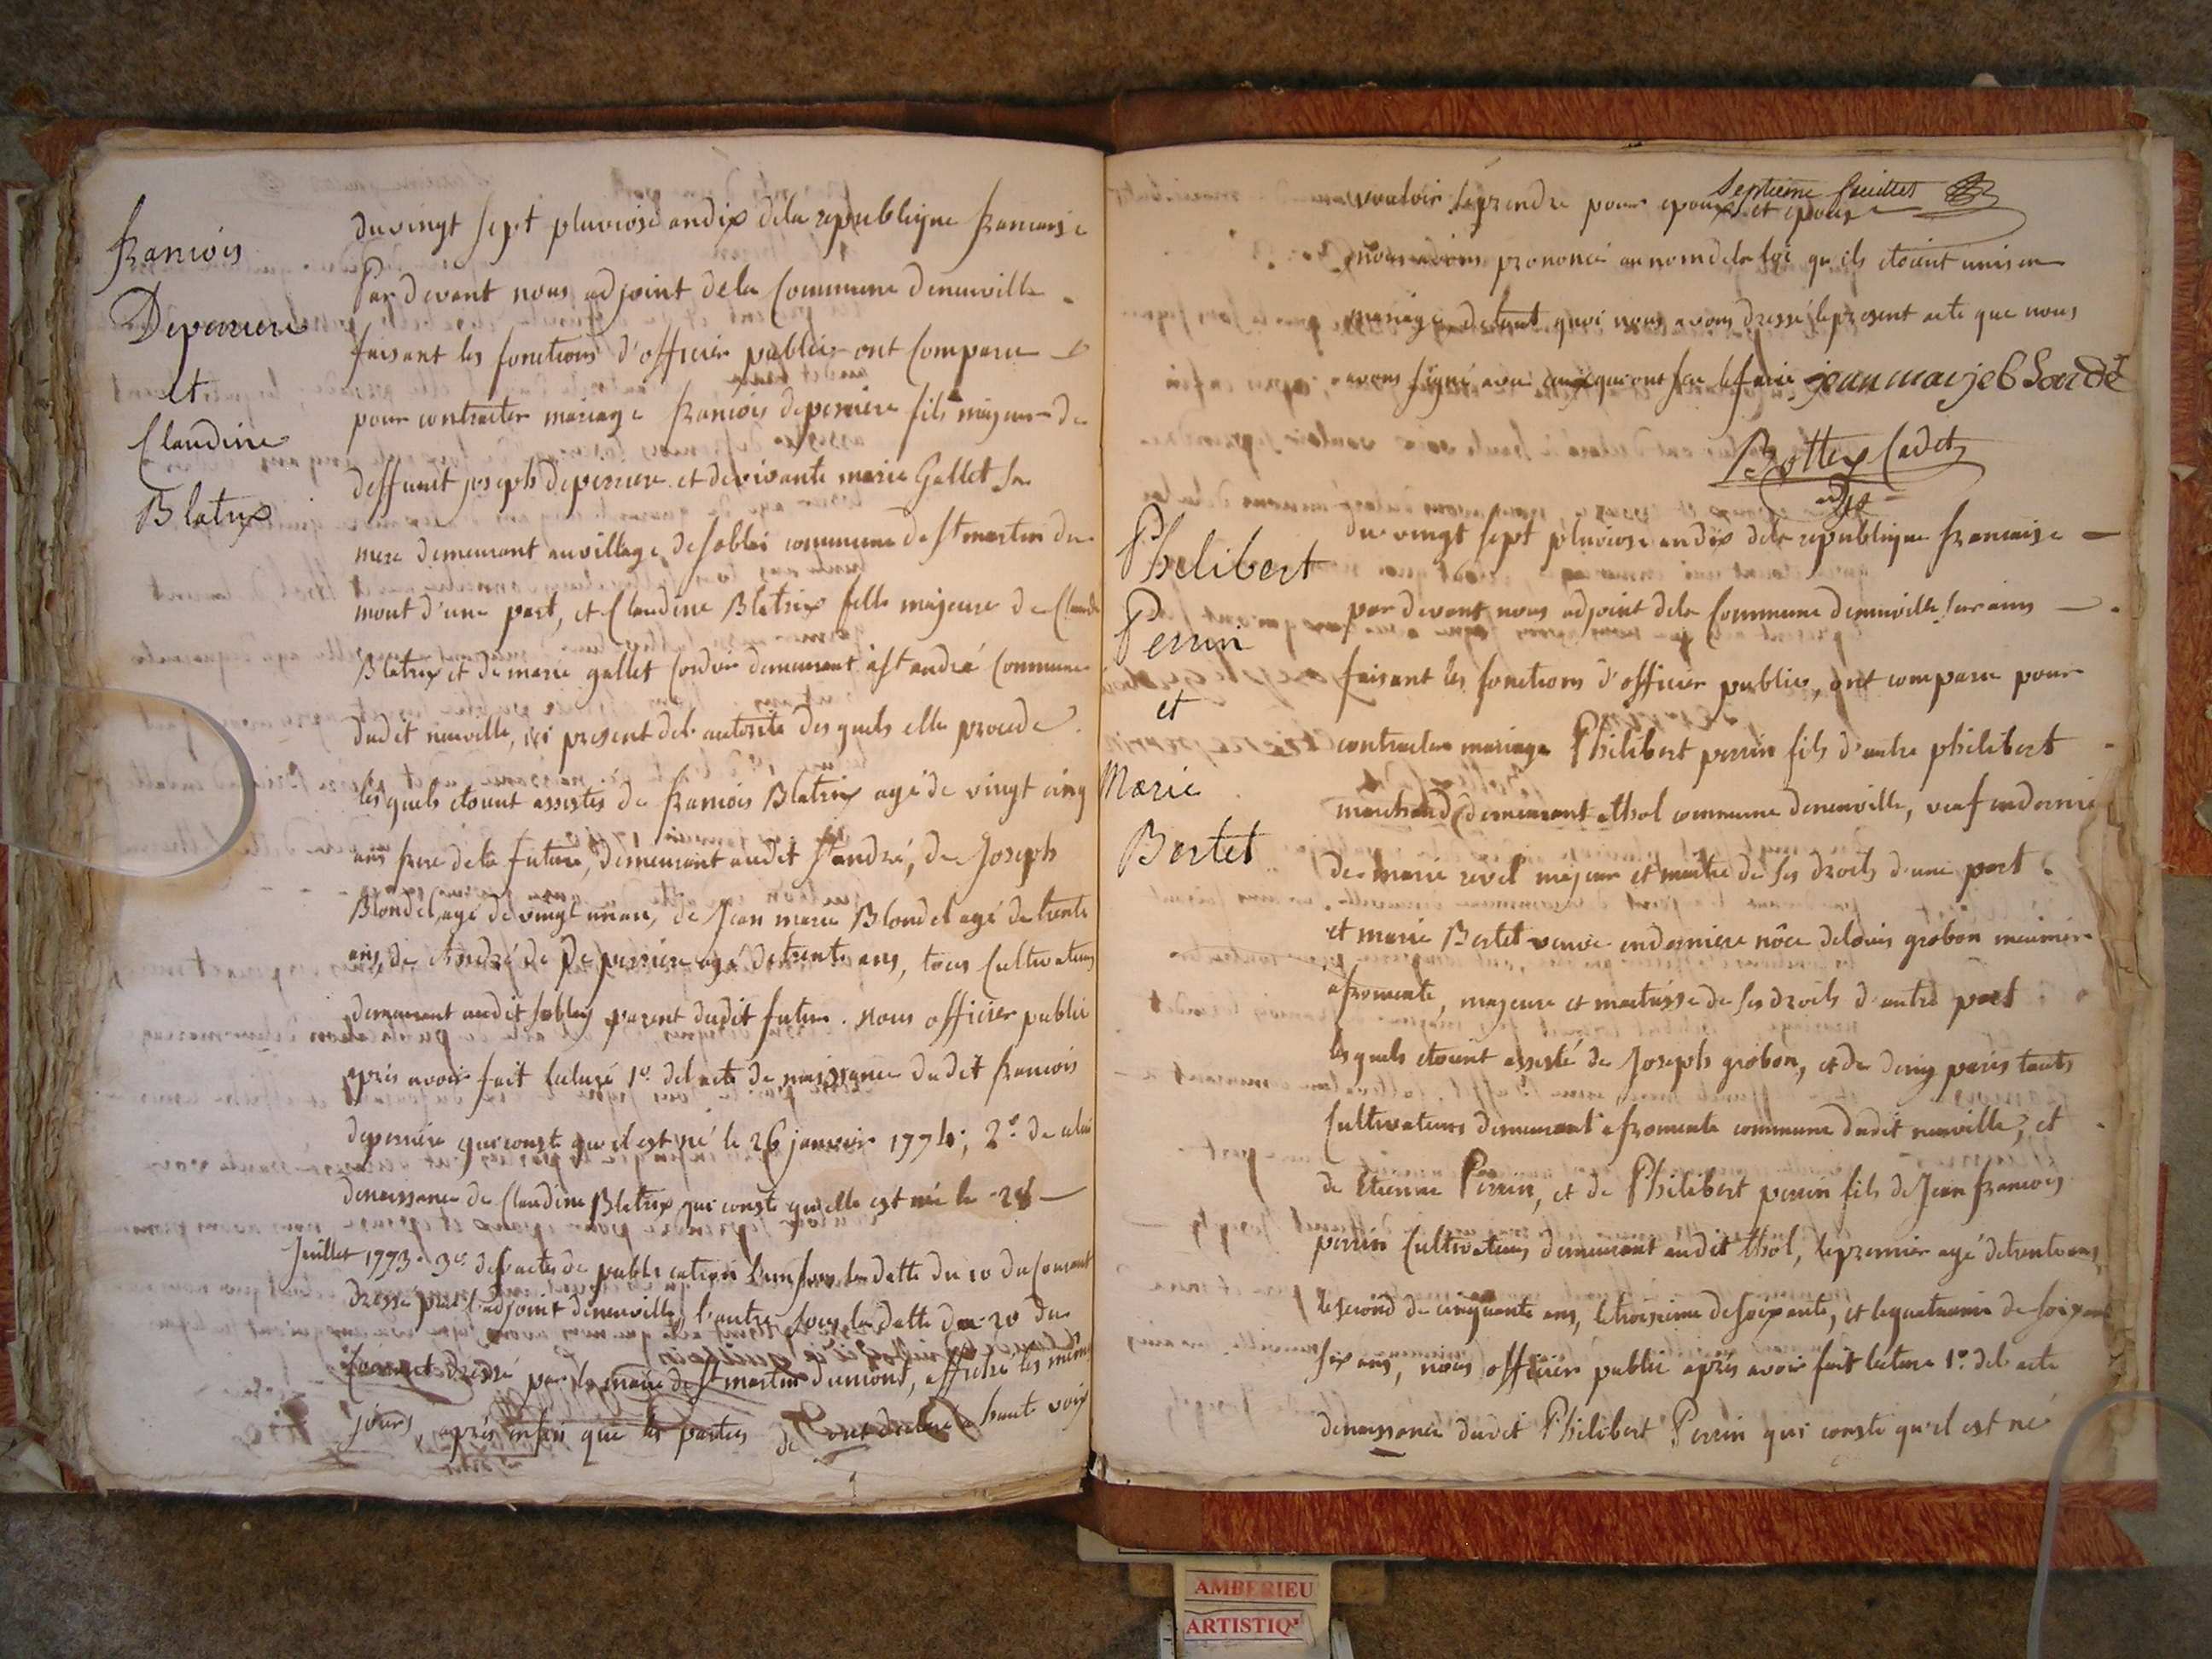 francois
Deperriere
et
Claudine
Blatrix
du vingt sept pluviose an dix de la republique francaise
Par devant nous adjoint de la Commune de neuville
faisant les fonctions d'officier public ont comparu
pour contracter mariage francois deperriere fils majeur de
deffunt joseph deperriere et de vivante marie Gallet sa
mere demeurant au village de sobley commune de st martin du
mont d'une part, et Claudine Blatrix fille majeure de Claude
Blatrix et de marie gallet demeurant a st andré Commune
dudit neuville, ici present de l'autorité des quels elle procede.
lesquels etoient assistés de francois Blatrix agé de vingt cinq
ans frere de la future, demeurant audit st andré, de Joseph
Blondel, agé de vingt un an, de Jean marie Blondel agé de trente
ans, de André de Deperriere agé de trente ans, tous Cultivateurs
demeurant audit sobley parent dudit futur. nous officier public
après avoir fait lecture 1º. de l'acte de naissance dudit francois
deperriere qui conste qu'il est né le 26 janvier 1774; 2º. de celui
de naissance de Claudine Blatrix qui conste qu'elle est né le 28
Juillet 1773. 3º. des actes de publication l'un sous la datte du 10 du Courant
dressé par l'adjoint de neuville, l'autre sous la datte du 20 du
Courant dressé par le maire de st martin du mont, affiché les même
jours, après enfin que les parties de ont declaré a haute voix
septieme feuillet
vouloir se prendre pour epoux et epouse
nous avons prononcé au nom de la loi qu'ils etoient unis en
mariage, de tout quoi nous avons dressé le present acte que nous
avons signé avec ceux qui ont scu le faire jean marie b londel
Bottex Cadet
adjt
Phelibert
Perrin
et
Marie
Bertet
du vingt sept pluviose an dix de la republique francaise
par devant nous adjoint de la Commune de neuville sur ains
faisant les fonctions d'officier public, ont comparu pour
contracter mariage Philibert perrin fils d'autre philibert
marchand demeurant a thol commune de neuville, veuf en dernie
de marie revel majeur et maitre de ses droits d'une part
et marie Bertet veuve en derniere nôce de louis grobon meunier
a fromente, majeure et maitresse de ses droits d'autre part
lesquels etoient assisté de Joseph grobon, et de paris touts
Cultivateurs demeurant a fromente commune dudit neuville, et
de Etienne Perrin, et de Philibert perrin fils de Jean francois
perrin Cultivateurs demeurant audit thol, le premier agé de trente ans,
le second de cinquante ans, le troisieme de soixante, et le quatrieme de soixante
six ans, nous officier public après avoir fait lecture 1º. de l'acte
de naissance dudit Philibert Perrin qui conste qu'il est né
AMBERIEU
ARTISTIQ